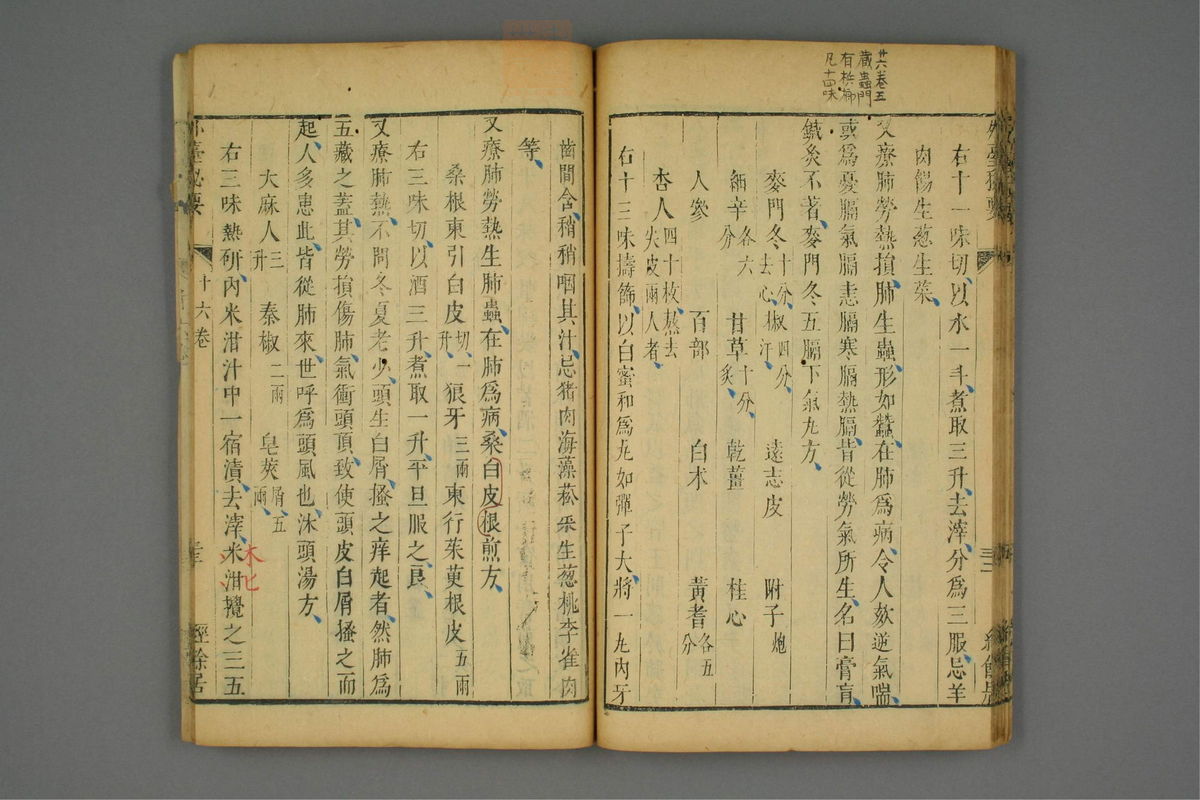 廿六卷五
蔵蟲門
有梹榔
凡十四味
外臺秘要
右十一味切以水一斗煮取三升去滓分爲三服忌羊
肉餳生葱生菜
又療肺勞熱損肺生蟲形如蠶在肺爲病令人欬逆氣喘
或爲憂膈氣膈恚膈寒膈熱膈皆從勞氣所生名曰膏肓
鍼灸不著麥門冬五膈下氣丸方
麥門冬十分去心 椒四分汗 遠志皮 附子炮
細辛各六分 甘草十分炙 乾薑 桂心
人參 百部 白朮 黃耆各五分
杏人四十枚熬去尖皮兩人者
右十三味擣篩以白蜜和爲丸如彈子大將一丸內牙
齒間含稍稍咽其汁忌猪肉海藻菘菜生葱桃李雀肉
等
又療肺勞熱生肺蟲在肺爲病桑白皮根煎方
桑根東引白皮切一升 狼牙三兩 東行茱萸根皮五兩
右三味切以酒三升煮取一升平旦服之良
又療肺熱不問冬夏老少頭生白屑搔之痒起者然肺爲
五藏之蓋其勞損傷肺氣衝頭頂致使頭皮白屑搔之而
起人多患此皆從肺來世呼爲頭風也沐頭湯方
大麻人三升 秦椒二兩 皂莢屑五兩
右三味熟研內米泔汁中一宿漬去滓米泔攪之三五
木匕
外臺秘要
十六卷
三十二
經餘居